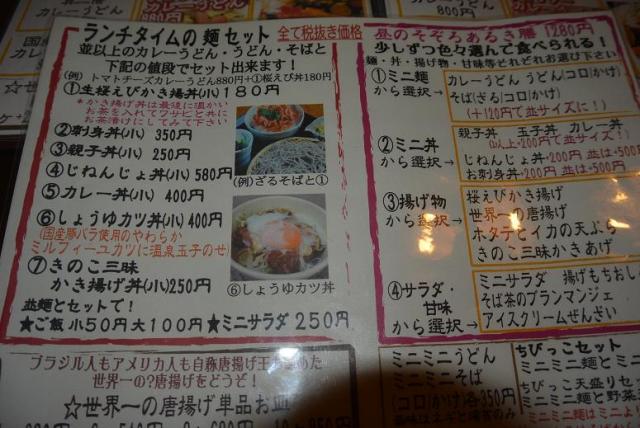 ランチタイムの麺セット 全て税抜き価格
並以上のカレーうどん・うどん・そばと
下記の値段でセット出来ます！
(例) トマトチーズカレーうどん880円+①桜えび丼180円
①生桜えびかき揚丼(小) 180円
*かき揚げ丼は最後に温かい
お茶を入れてワサビと共に
お茶漬けにしてみて下さい
②刺身丼(小) 350円
③親子丼(小) 250円
④じねんじょ丼(小) 580円
⑤カレー丼(小) 400円
⑥しょうゆカツ丼(小) 400円
(国産豚バラ使用のやわらか
ミルフィーユカツに温泉玉子のせ)
⑦きのこ三昧
かき揚丼(小) 250円
(例)ざるそばと①
⑥しょうゆカツ丼
並麺とセットで！
★ご飯 小50円 大100円 ★ミニサラダ 250円
ブラジル人もアメリカ人も自称唐揚げ王も
世界一の?唐揚げをどうぞ！
☆世界一の唐揚げ単品お皿
昼のそぞろあるき膳 1280円
少しずつ色々選んで食べられる！
麺・丼・揚げ物・甘味等それぞれお選び下さい
①ミニ麺
から選択→
カレーうどん うどん(コロ/かけ)
そば(ざる/コロ/かけ)
(+120円で並サイズに！)
②ミニ丼
から選択→
親子丼 玉子丼 カレー丼
(以上+200円で並サイズ！)
じねんじょ丼+200円 並は+500円
お刺身丼+200円 並は+500円
③揚げ物
から選択→
桜えびかき揚げ
世界一の唐揚げ
ホタテとイカの天ぷら
きのこ三昧かきあげ
④サラダ・
甘味
から選択→
ミニサラダ 揚げもちおし
そば茶のブランマンジェ
アイスクリームぜんざい
ミニミニうどん
ミニミニそば
(コロ/かけ)各350円
ちびっこセット
ミニミニ麺とミニ
ちびっこ天盛りセ
ミニミニ麺と野菜